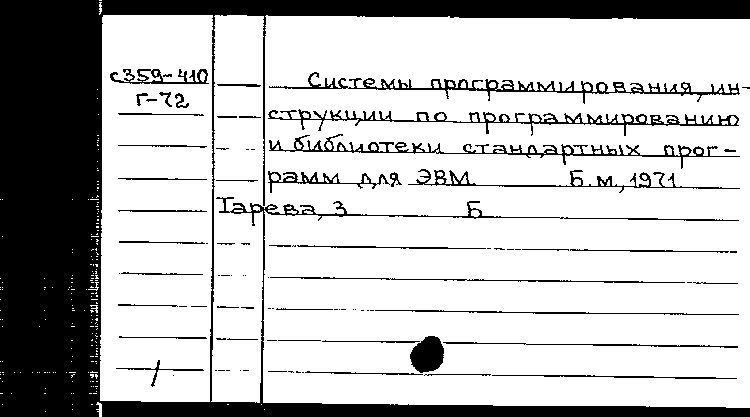 с359-410
Г-72
Системы программирования, ин-
струкции по программированию
и библиотеки стандартных прог-
рамм для ЭВМ. Б.м., 1971.
Гарева, З Б
/